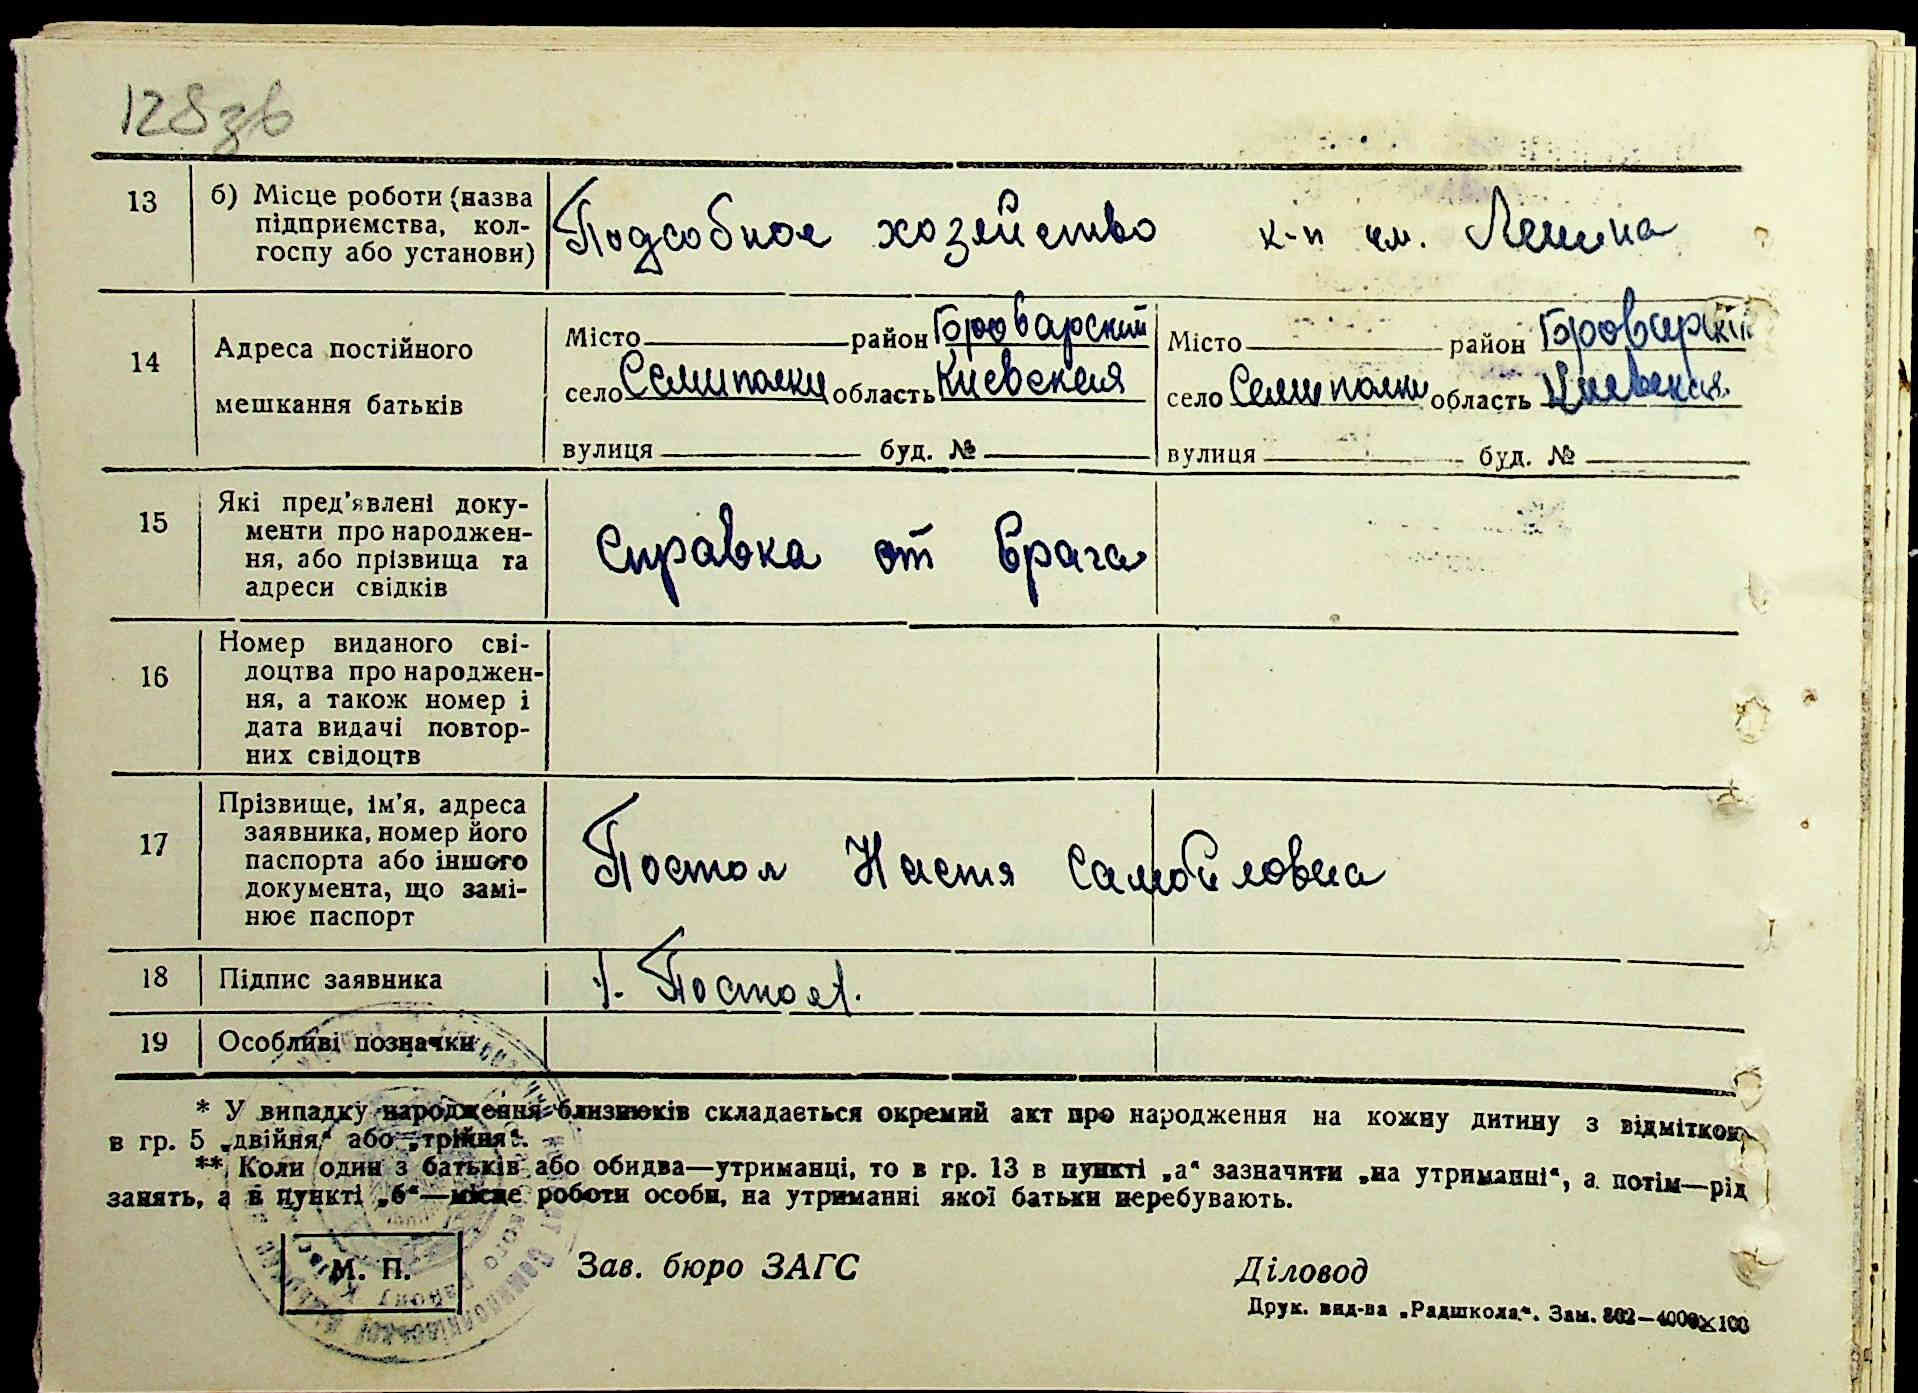 128зв
13 б) Місце роботи (назва
підприємства, кол-
госпу або установи)
Подсобное хозяйство к-п им. Ленина
14 Адреса постійного
мешкання батьків
Місто район Броварский
село Семиполки область Киевская
вулиця буд. №
Місто район Броварский
село Семиполки область Киевская
вулиця буд. №
15 Які пред'явлені доку-
менти про народжен-
ня, або прізвища та
адреси свідків
Справка от врача
16 Номер виданого сві-
доцтва про народжен-
ня, а також номер і
дата видачі повтор-
них свідоцтв
17 Прізвище, ім'я, адреса
заявника, номер його
паспорта або іншого
документа, що замі-
нює паспорт
Постол Настя Самойловна
18 Підпис заявника
Постол
19 Особливі позначки
* У випадку народження близнюків складається окремий акт про народження на кожну дитину з відміткою
в гр. 5 „двійня“ або „трійня“.
** Коли один з батьків або обидва—утриманці, то в гр. 13 в пункті „а“ зазначити „на утриманні“, а потім—рід
занять, а в пункті „б“—місце роботи особи, на утриманні якої батьки перебувають.
М. П.
Зав. бюро ЗАГС
Діловод
Друк. вид-ва „Радшкола“. Зам. 802—4000×100